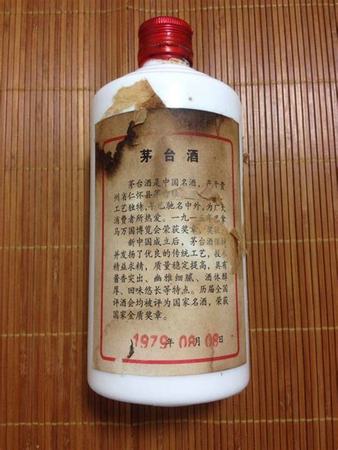 茅台酒
茅台酒是中国名酒，产于贵
州省仁怀县茅台镇
工艺独特，早已驰名中外，为广大
消费者所热爱。一九一五年巴拿
马万国博览会荣获奖章、奖状。
新中国成立后，茅台酒
并发扬了优良的传统工艺，技术
精益求精，质量稳定提高，具有
酱香突出、幽雅细腻、酒体醇
厚、回味悠长等特点。历届全国
评酒会均被评为国家名酒，荣获
国家金质奖章。
1979年08月08日